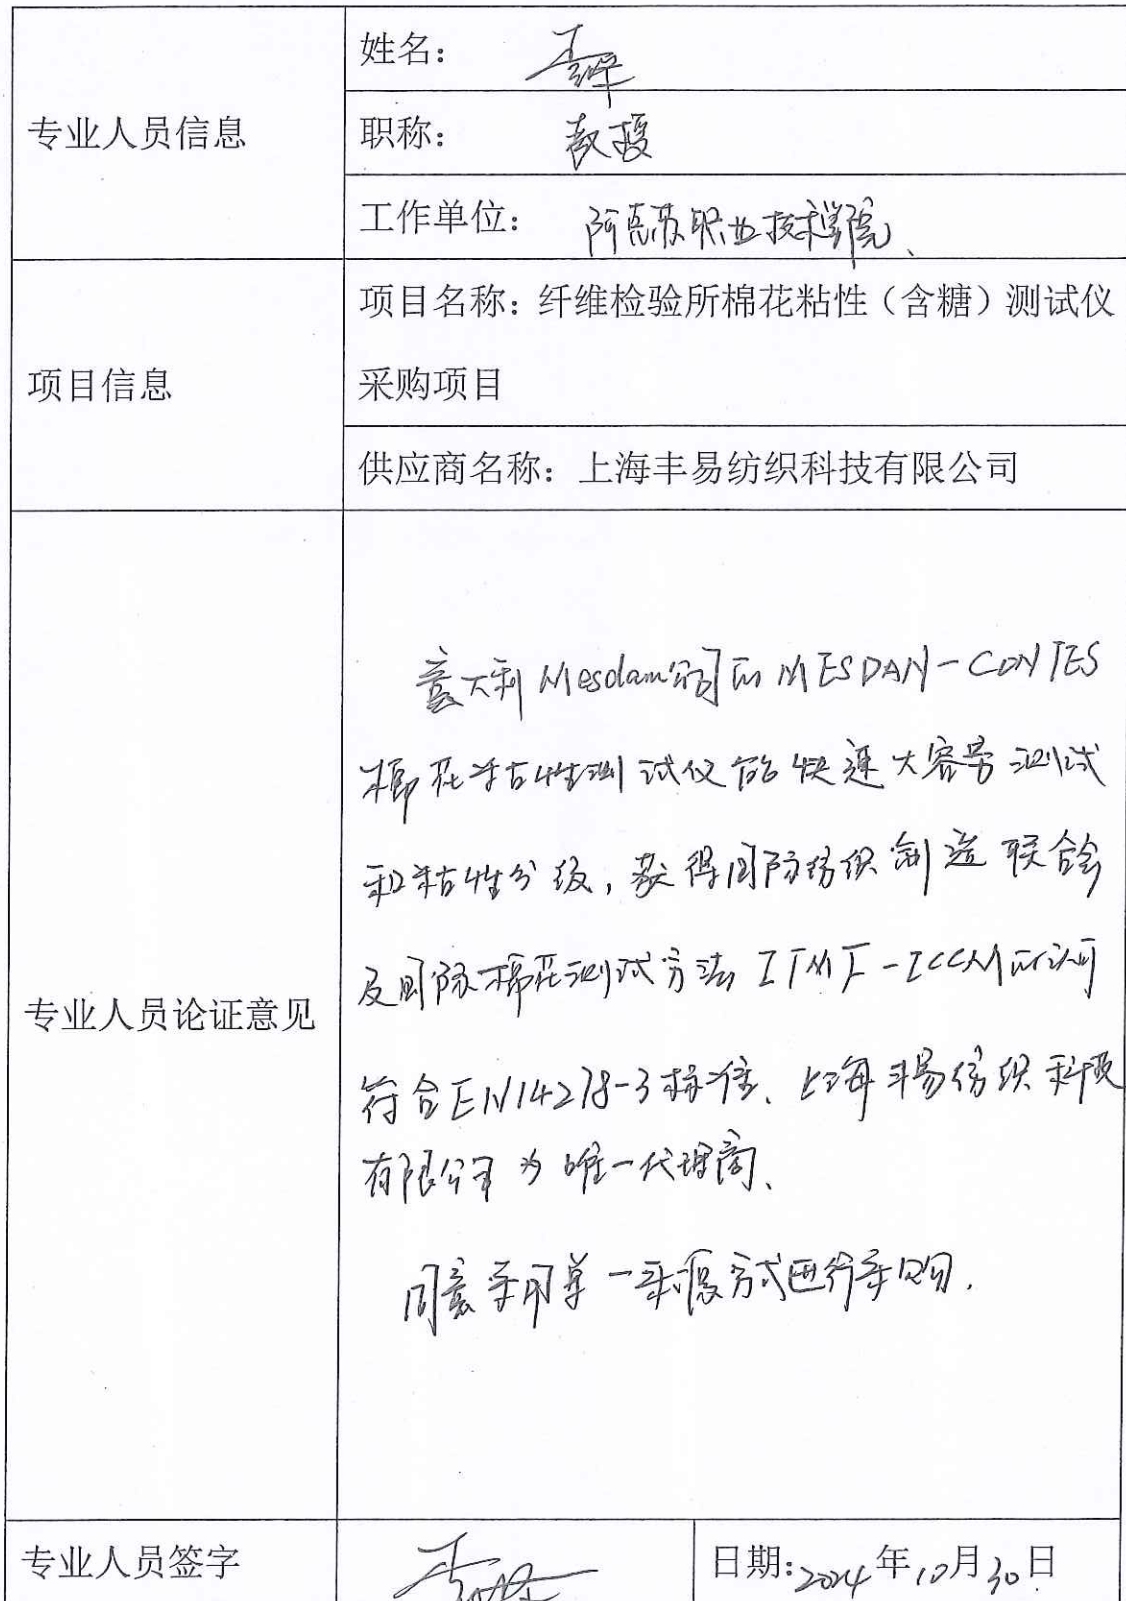 姓名：
专业人员信息
职称： 教授
工作单位： 阿克苏职业技术学院、
项目名称：纤维检验所棉花粘性（含糖）测试仪
项目信息
采购项目
供应商名称：上海丰易纺织科技有限公司
意大利Mesdam公司的MESDAN-CONTES
棉花粘性测试仪能快速大容量测试
和粘性分级，获得国际纺织制造联合会
及国际棉花测试方法ITMF-ICCM所认可
专业人员论证意见
符合EN14278-3标准、上海丰易纺织科技
有限公司为唯一代理商、
同意采用单一来源方式进行采购．
专业人员签字
日期:2024年10月30日